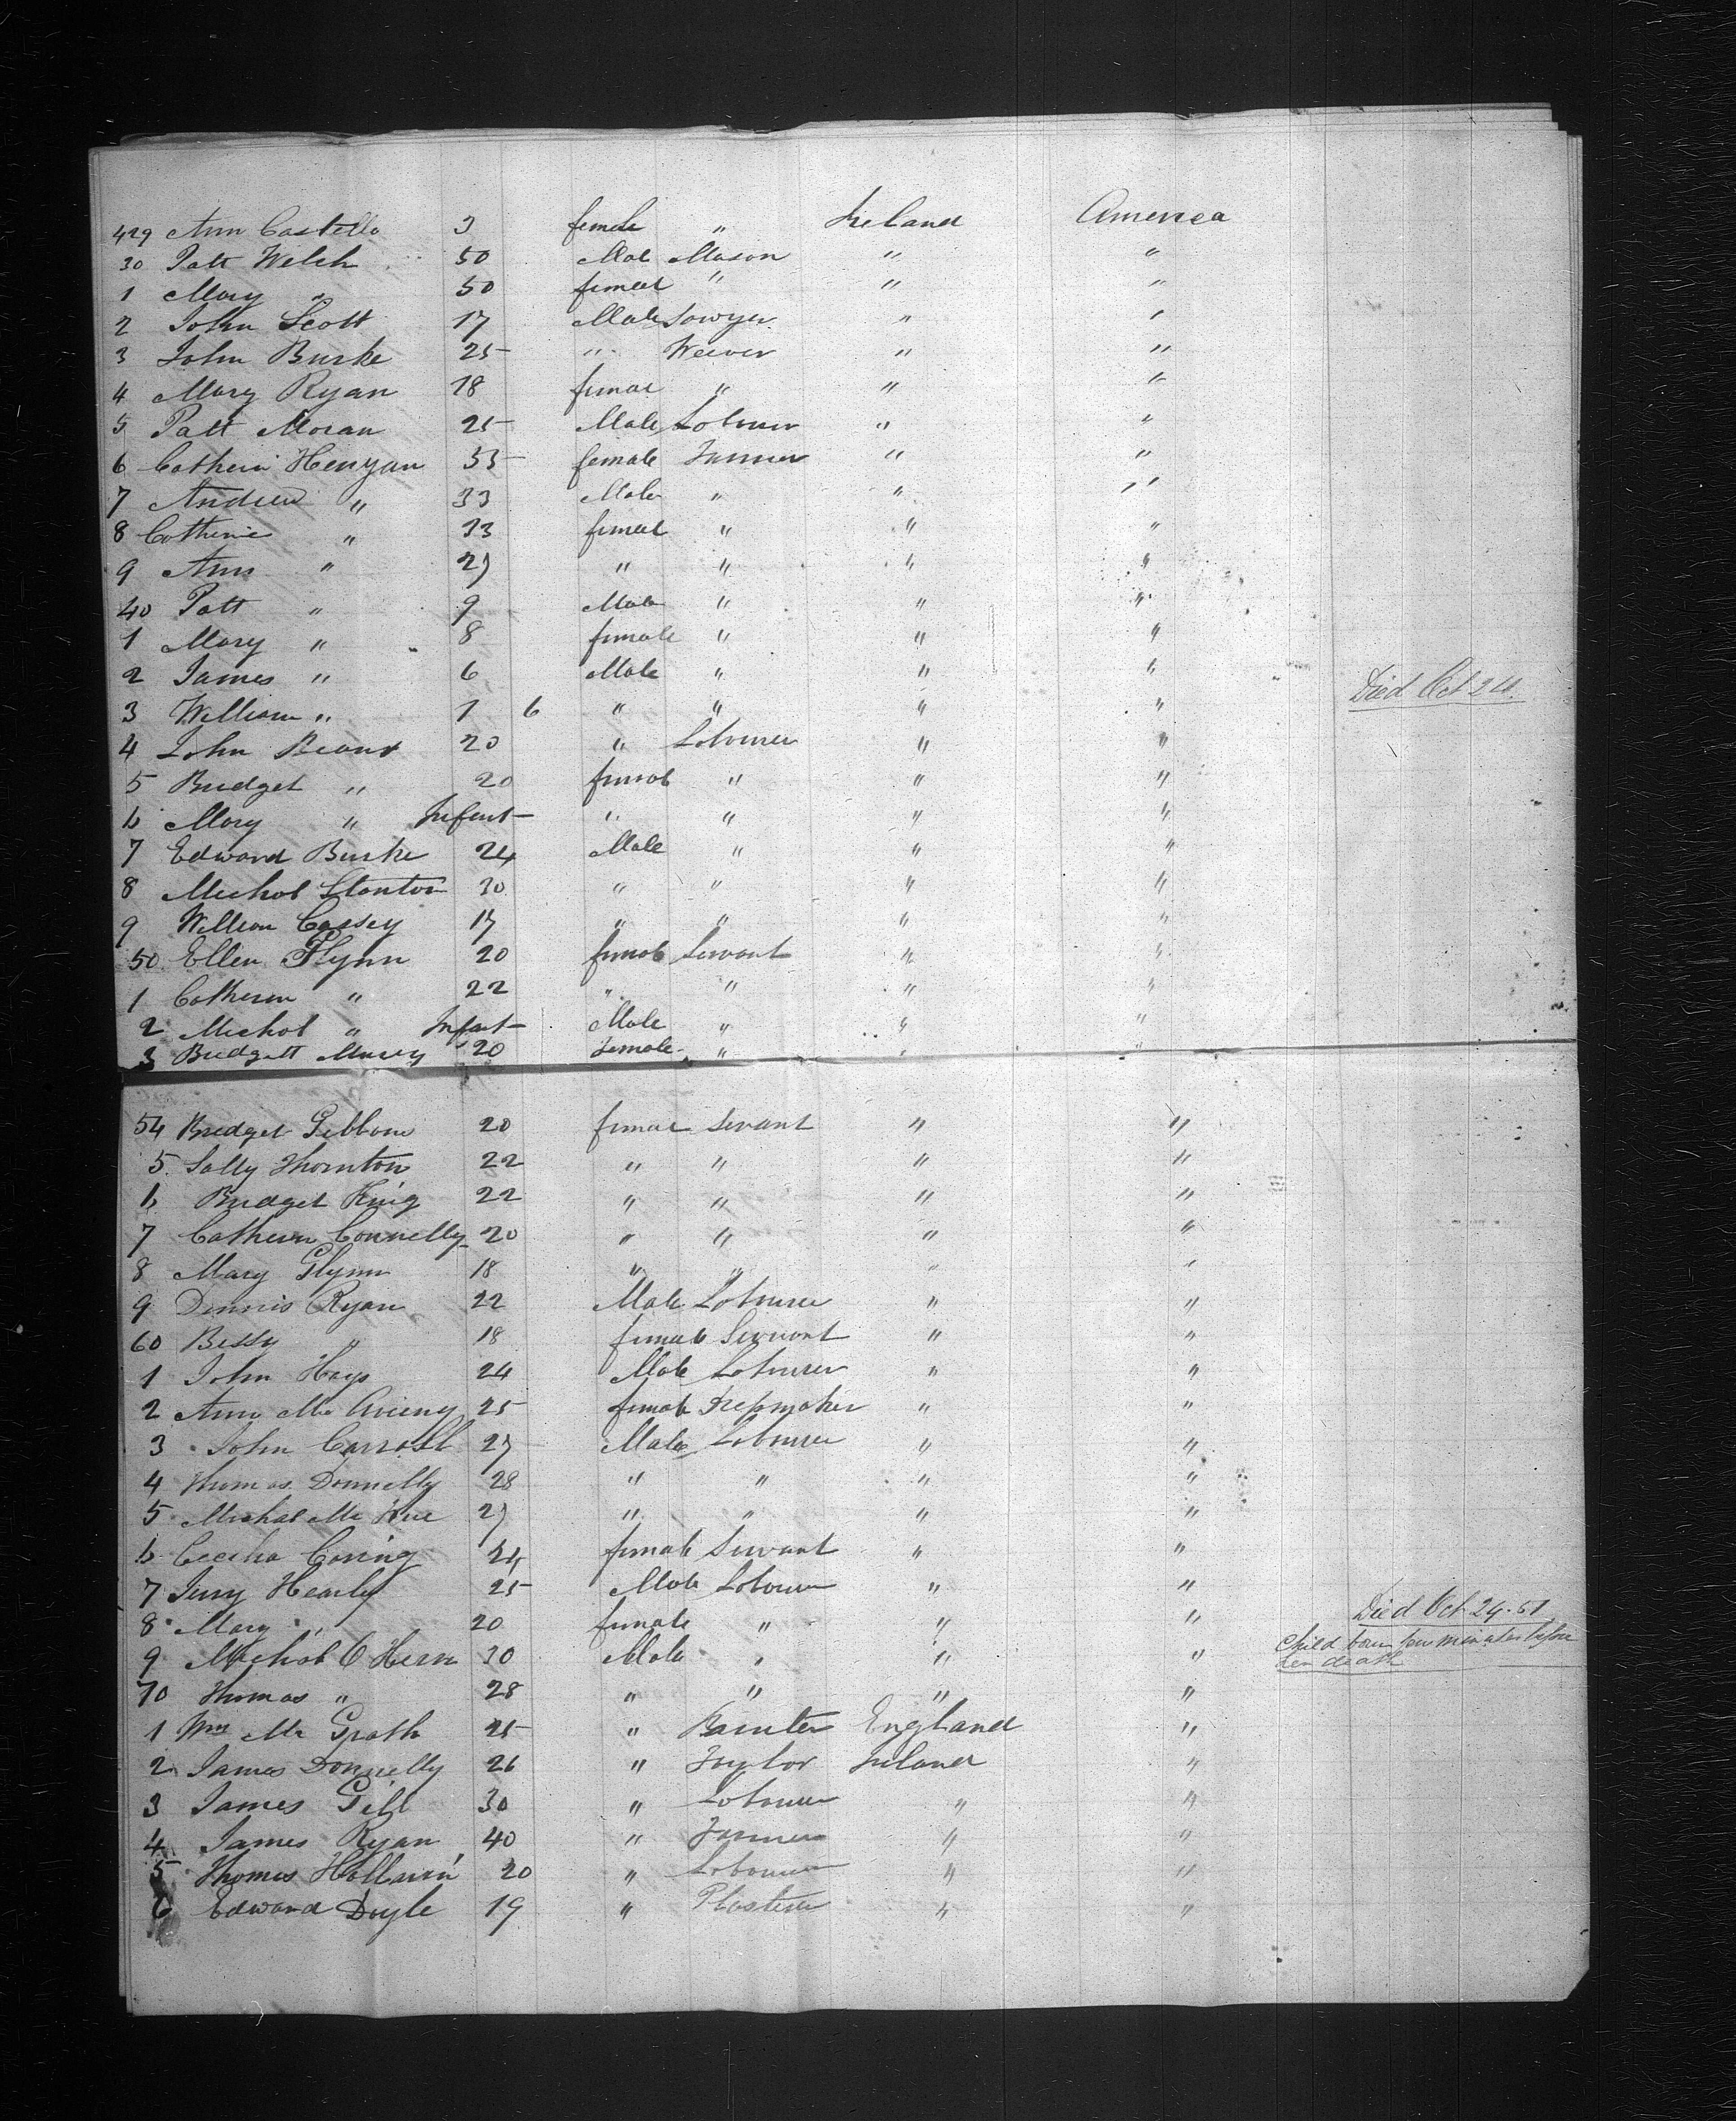 429 Ann Costello 3 female " Ireland America
30 Patt Welch 50 Male Mason " "
1 Mary " 50 female " " "
2 John Scott 17 Male Sawyer " "
3 John Burke 25 " Weever " "
4 Mary Ryan 18 female " " "
5 Patt Moran 25 Male Labourer " "
6 Catherin Henyan 55 female Farmer " "
7 Andrew " 33 Male " " "
8 Catherine " 33 female " " "
9 Ann " 27 " " " "
40 Patt " 9 Male " " "
1 Mary " 8 female " " "
2 James " 6 Male " " "
3 William " 1 6 " " " " Died Oct 24
4 John 20 " Labourer " "
5 Bridget " 20 female " " "
6 Mary " Infant " " " "
7 Edward Burke 24 Male " " "
8 Michal Stanton 30 " " " "
9 William Cassey 17 " " " "
50 Ellen Flynn 20 female Servant " "
1 Catheren " 22 " " " "
2 Michal " Infant Male " " "
3 Bridgett 20 female " " "
54 Bridget Gibbons 20 female Servant " "
5 Sally Thornton 22 " " " "
6 Bridget King 22 " " " "
7 Catheren Connelly 20 " " " "
8 Mary Glynn 18 " " " "
9 Dennis Ryan 22 Male Labourer " "
60 Bessy " 18 female Servant " "
1 John Hays 24 Male Labourer " "
2 Ann Mc 25 female Dressmaker " "
3 John Carroll 27 Male Labourer " "
4 Thomas Donnelly 28 " " " "
5 Michal Mc Hue 27 " " " "
6 Cecilia 24 female Servant " "
7 Jerry Hearly 25 Male Labourer " "
8 Mary " 20 female " " " Died Oct 24 · 51
9 Michal O Hern 30 Male " " " Child born few minutes before
her death
70 Thomas " 28 " " " "
1 Wm Mc Grath 25 " Painter England "
2 James Donnelly 26 " Taylor Ireland "
3 James Gill 30 " Labourer " "
4 James Ryan 40 " Farmer " "
5 Thomas 20 " Labourer " "
6 Edward Doyle 19 " Plasterer " "